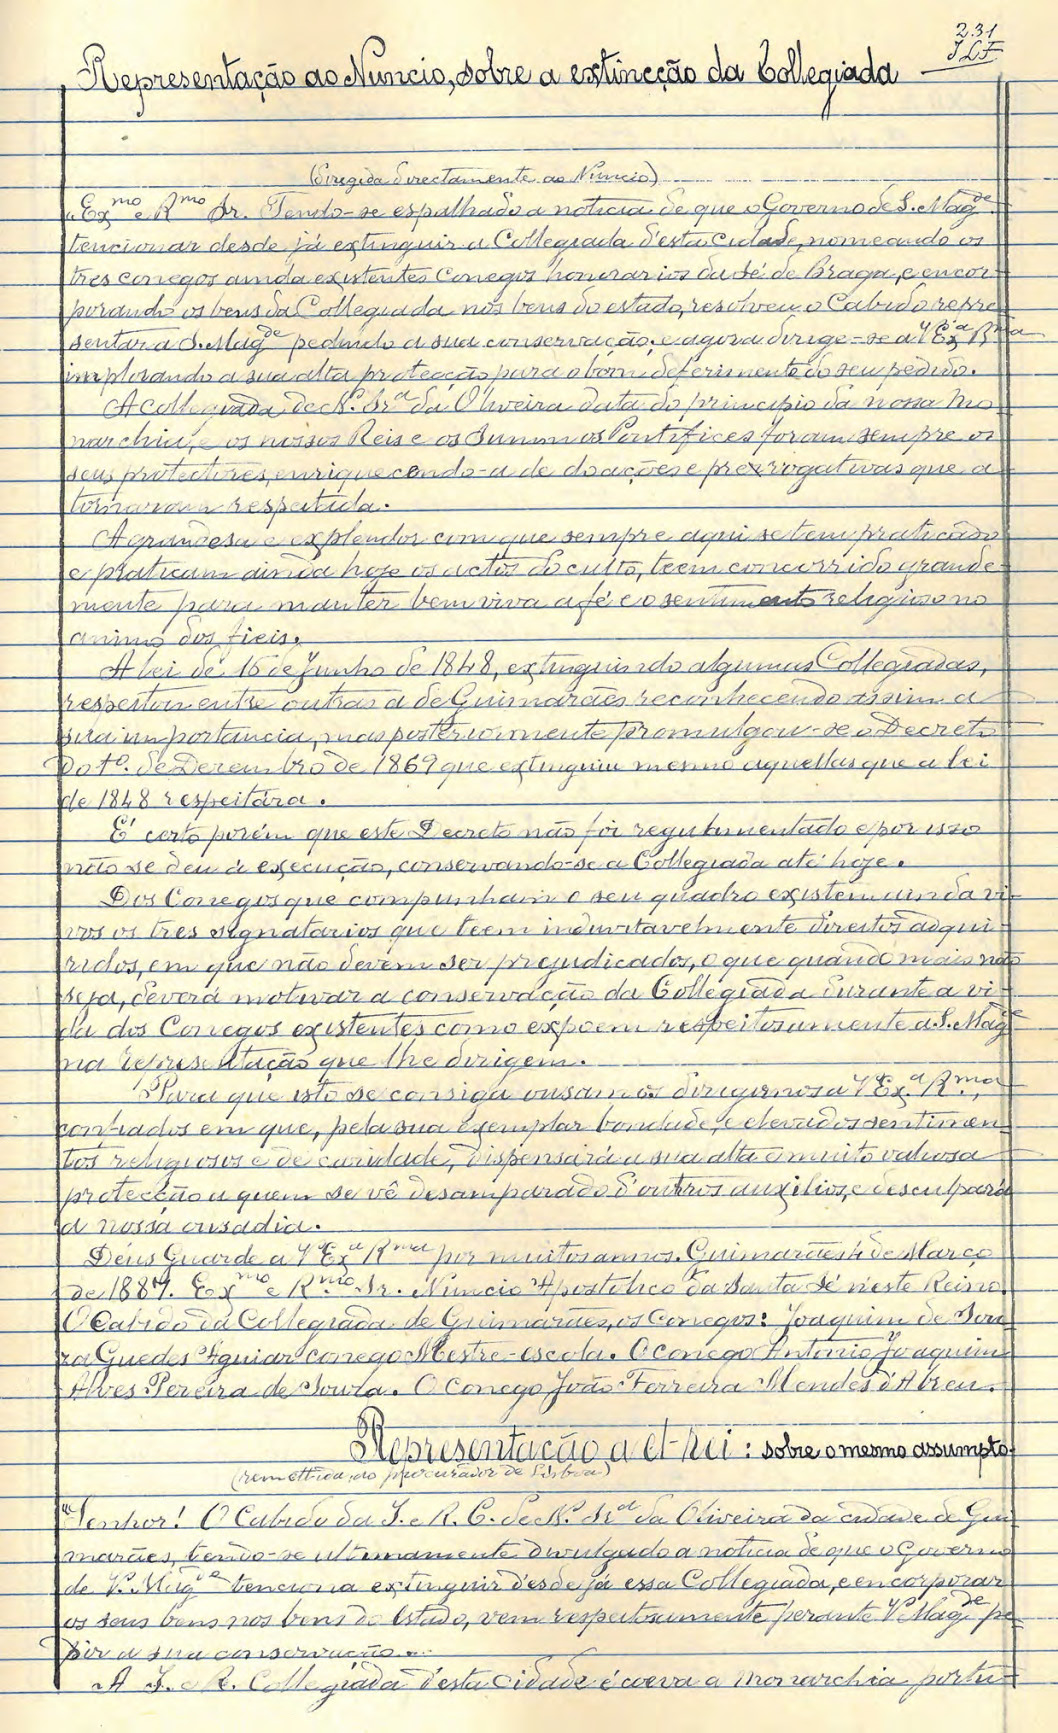 231
J L F
Representação ao Nuncio, sobre a extincção da Collegiada
(Dirigida directamente ao Nuncio)
"Ex.mo e R.mo Sr. Tendo-se espalhado a noticia de que o Governo de S. Mag.de
tencionar desde já extinguir a Collegiada d'esta cidade, nomeando os
tres conegos ainda existentes Conegos honorarios da Sé de Braga, e encor-
porando os bens da Collegiada nos bens do estado, resolveu o Cabido repre-
sentar a S. Mag.de pedindo a sua conservação; e agora dirige-se a V.Ex.a R.ma
implorando a sua alta protecção para o bom deferimento do seu pedido.
A Collegiada de N. Sr.a da Oliveira data do principio da nossa Mo-
narchia, e os nossos Reis e os Summos Pontifices foram sempre os
seus protectores, enriquecendo-a de doações e prerrogativas que a
tornaram respeitada.
A grandesa e explendor com que sempre aqui se tem praticado
e praticam ainda hoje os actos do culto, teem concorrido grande-
mente para manter bem viva a fé e o sentimento religioso no
animo dos fieis.
A lei de 16 de Junho de 1848, extinguindo algumas Collegiadas,
respeitou entre outras a de Guimarães reconhecendo assim a
sua importancia, mas posteriormente promulgou-se o Decreto
do 1º. de Dezembro de 1869 que extinguiu mesmo aquellas que a lei
de 1848 respeitára.
É certo porém que este Decreto não foi regulamentado e por isso
não se deu á execução, conservando-se a Collegiada até hoje.
Dos Conegos que compunham o seu quadro existem ainda vi-
vos os tres signatarios que teem induvitavelmente direitos adqui-
ridos, em que não devem ser prejudicados, o que quando mais não
seja, deverá motivar a conservação da Collegiada durante a vi-
da dos Conegos existentes como expoem respeitosamente a S. Mag.e
na representação que lhe dirigem.
Para que isto se consiga ousamos dirigirnos a V.Ex.a R.ma,
confiados em que, pela sua exemplar bondade, e elevados sentimen-
tos religiosos e de caridade, dispensará a sua alta e muito valiosa
protecção a quem se vê desamparado d'outros auxilios, e desculpará
a nossa ousadia.
Deus Guarde a V.Ex.a R.ma por muitos annos. Guimarães 4 de Março
de 1887. Ex.mo e R.mo Sr. Nuncio Apostolico da Santa Sé n'este Reino.
O Cabido da Collegiada de Guimarães, os Conegos: Joaquim de Sou-
za Guedes Aguiar conego Mestre-escola. O conego Antonio Joaquim
Alves Pereira de Souza. O Conego João Ferreira Mendes d'Abreu.
Representação a el-Rei: sobre o mesmo assumpto
(remettida ao procurador de Lisboa)
"Senhor! O Cabido da I. e R. C. de N. Sr.a da Oliveira da cidade de Gui-
marães, tendo-se ultimamente divulgado a noticia de que o Governo
de V. Mag.e tenciona extinguir desde já essa Collegiada, e encorporar
os seus bens nos bens do Estado, vem respeitosamente perante V. Mag.de pe-
dir a sua conservação.
A I. e R. Collegiada d'esta Cidade é coeva a monarchia portu-